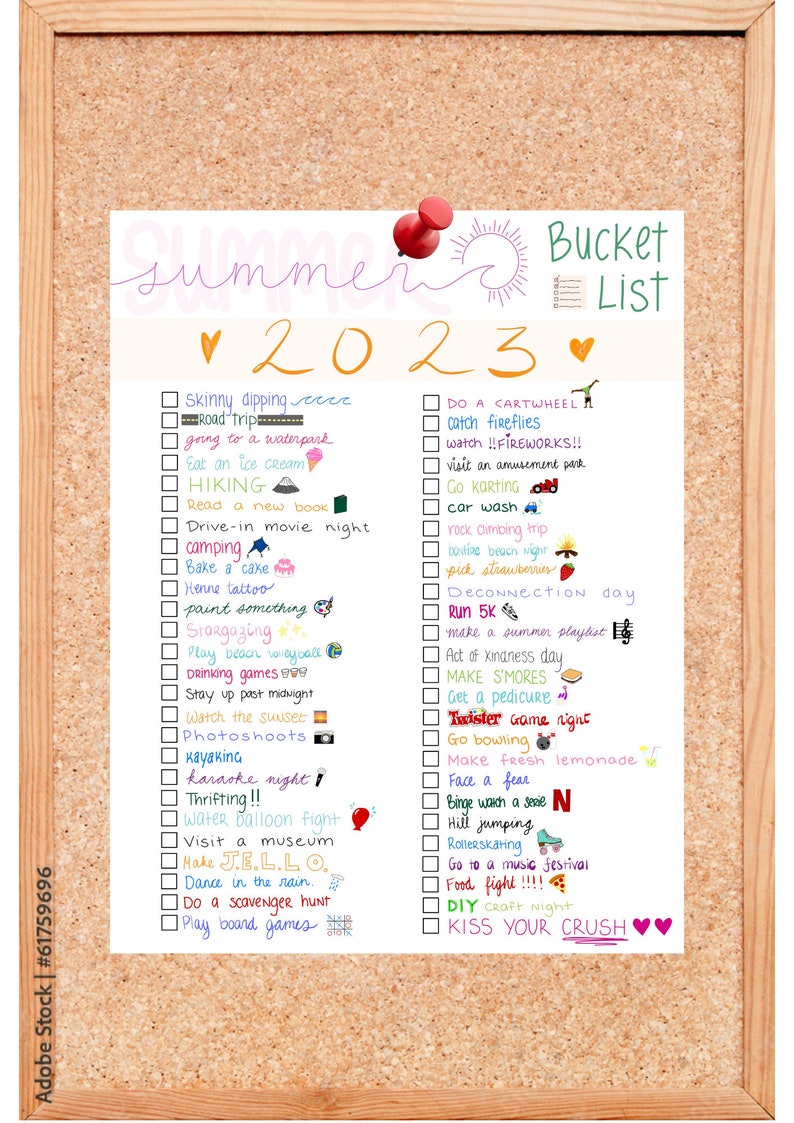 summer
summer
Bucket
List
2023
Skinny dipping
Road trip
going to a waterpark
Eat an ice cream
HIKING
Read a new book
Drive-in movie night
camping
Bake a cake
Henne tattoo
paint something
Stargazing
Play beach volleyball
DRINKING GAMES
Stay up past midnight
Watch the sunset
Photoshoots
kayaking
karaoke night
Thrifting!!
Water balloon fight
Visit a museum
Make J.E.L.L.O.
Dance in the rain.
Do a scavenger hunt
Play board games
DO A CARTWHEEL
catch fireflies
watch !!FIREWORKS!!
visit an amusement park
Go karting
car wash
rock climbing trip
bonfire beach night
pick strawberries
Deconnection day
Run 5K
make a summer playlist
Act of kindness day
MAKE S'MORES
Get a pedicure
Twister Game night
Go bowling
Make fresh lemonade
Face a fear
Binge watch a serie N
Hill jumping
Rollerskating
Go to a music festival
Food fight !!!!
DIY craft night
KISS YOUR CRUSH
Adobe Stock | #61759696